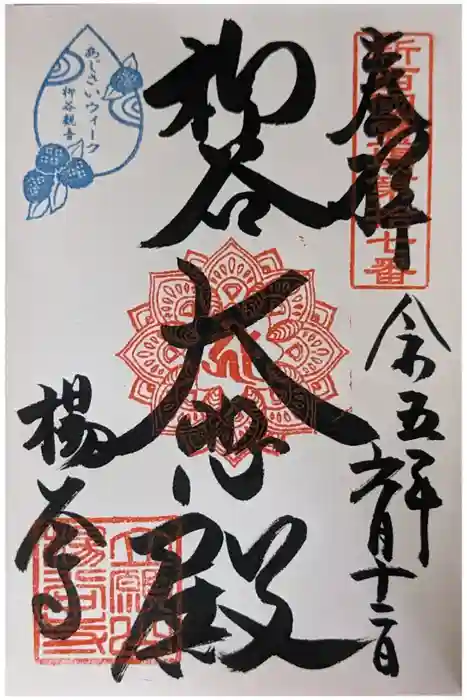 奉拝
新西国第十七番
令和五年六月十二日
柳谷
大悲殿
楊谷寺
あじさいウィーク
柳谷観音
立願山
楊谷寺